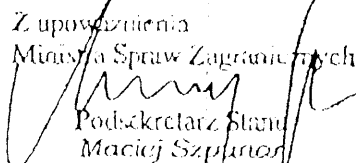 Z upoważnienia
Ministra Spraw Zagranicznych
Podsekretarz Stanu
Maciej Szpunar